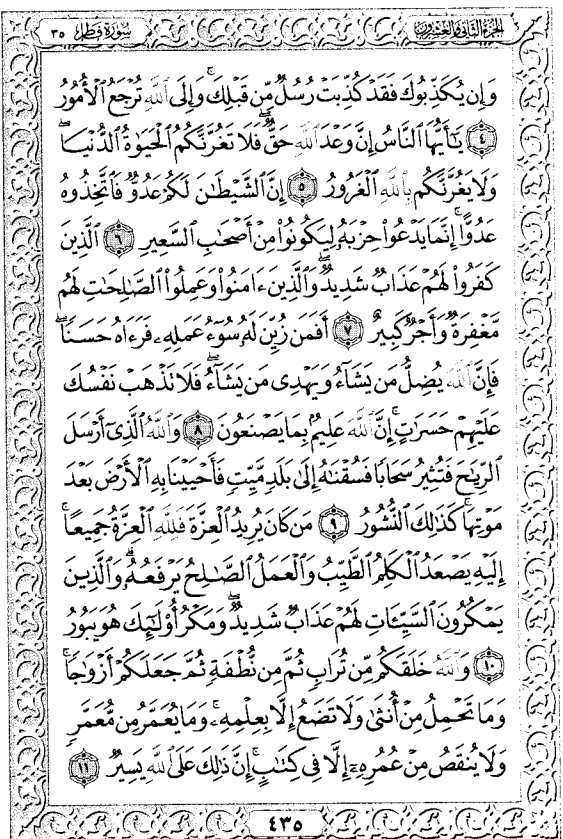 الجزء الثاني والعشرون
سورة فاطر ٣٥
وَإِن يُكَذِّبُوكَ فَقَدْ كُذِّبَتْ رُسُلٌ مِّن قَبْلِكَ ۚ وَإِلَى ٱللَّهِ تُرْجَعُ ٱلْأُمُورُ
٤ يَـٰٓأَيُّهَا ٱلنَّاسُ إِنَّ وَعْدَ ٱللَّهِ حَقٌّ ۖ فَلَا تَغُرَّنَّكُمُ ٱلْحَيَوٰةُ ٱلدُّنْيَا ۖ
وَلَا يَغُرَّنَّكُم بِٱللَّهِ ٱلْغَرُورُ ٥ إِنَّ ٱلشَّيْطَـٰنَ لَكُمْ عَدُوٌّ فَٱتَّخِذُوهُ
عَدُوًّا ۚ إِنَّمَا يَدْعُوا۟ حِزْبَهُۥ لِيَكُونُوا۟ مِنْ أَصْحَـٰبِ ٱلسَّعِيرِ ٦ ٱلَّذِينَ
كَفَرُوا۟ لَهُمْ عَذَابٌ شَدِيدٌ ۖ وَٱلَّذِينَ ءَامَنُوا۟ وَعَمِلُوا۟ ٱلصَّـٰلِحَـٰتِ لَهُم
مَّغْفِرَةٌ وَأَجْرٌ كَبِيرٌ ٧ أَفَمَن زُيِّنَ لَهُۥ سُوٓءُ عَمَلِهِۦ فَرَءَاهُ حَسَنًا ۖ
فَإِنَّ ٱللَّهَ يُضِلُّ مَن يَشَآءُ وَيَهْدِى مَن يَشَآءُ ۖ فَلَا تَذْهَبْ نَفْسُكَ
عَلَيْهِمْ حَسَرَٰتٍ ۚ إِنَّ ٱللَّهَ عَلِيمٌۢ بِمَا يَصْنَعُونَ ٨ وَٱللَّهُ ٱلَّذِىٓ أَرْسَلَ
ٱلرِّيَـٰحَ فَتُثِيرُ سَحَابًا فَسُقْنَـٰهُ إِلَىٰ بَلَدٍ مَّيِّتٍ فَأَحْيَيْنَا بِهِ ٱلْأَرْضَ بَعْدَ
مَوْتِهَا ۚ كَذَٰلِكَ ٱلنُّشُورُ ٩ مَن كَانَ يُرِيدُ ٱلْعِزَّةَ فَلِلَّهِ ٱلْعِزَّةُ جَمِيعًا ۚ
إِلَيْهِ يَصْعَدُ ٱلْكَلِمُ ٱلطَّيِّبُ وَٱلْعَمَلُ ٱلصَّـٰلِحُ يَرْفَعُهُۥ ۚ وَٱلَّذِينَ
يَمْكُرُونَ ٱلسَّيِّـَٔاتِ لَهُمْ عَذَابٌ شَدِيدٌ ۖ وَمَكْرُ أُو۟لَـٰٓئِكَ هُوَ يَبُورُ
١٠ وَٱللَّهُ خَلَقَكُم مِّن تُرَابٍ ثُمَّ مِن نُّطْفَةٍ ثُمَّ جَعَلَكُمْ أَزْوَٰجًا ۚ
وَمَا تَحْمِلُ مِنْ أُنثَىٰ وَلَا تَضَعُ إِلَّا بِعِلْمِهِۦ ۚ وَمَا يُعَمَّرُ مِن مُّعَمَّرٍ
وَلَا يُنقَصُ مِنْ عُمُرِهِۦٓ إِلَّا فِى كِتَـٰبٍ ۚ إِنَّ ذَٰلِكَ عَلَى ٱللَّهِ يَسِيرٌ ١١
٤٣٥